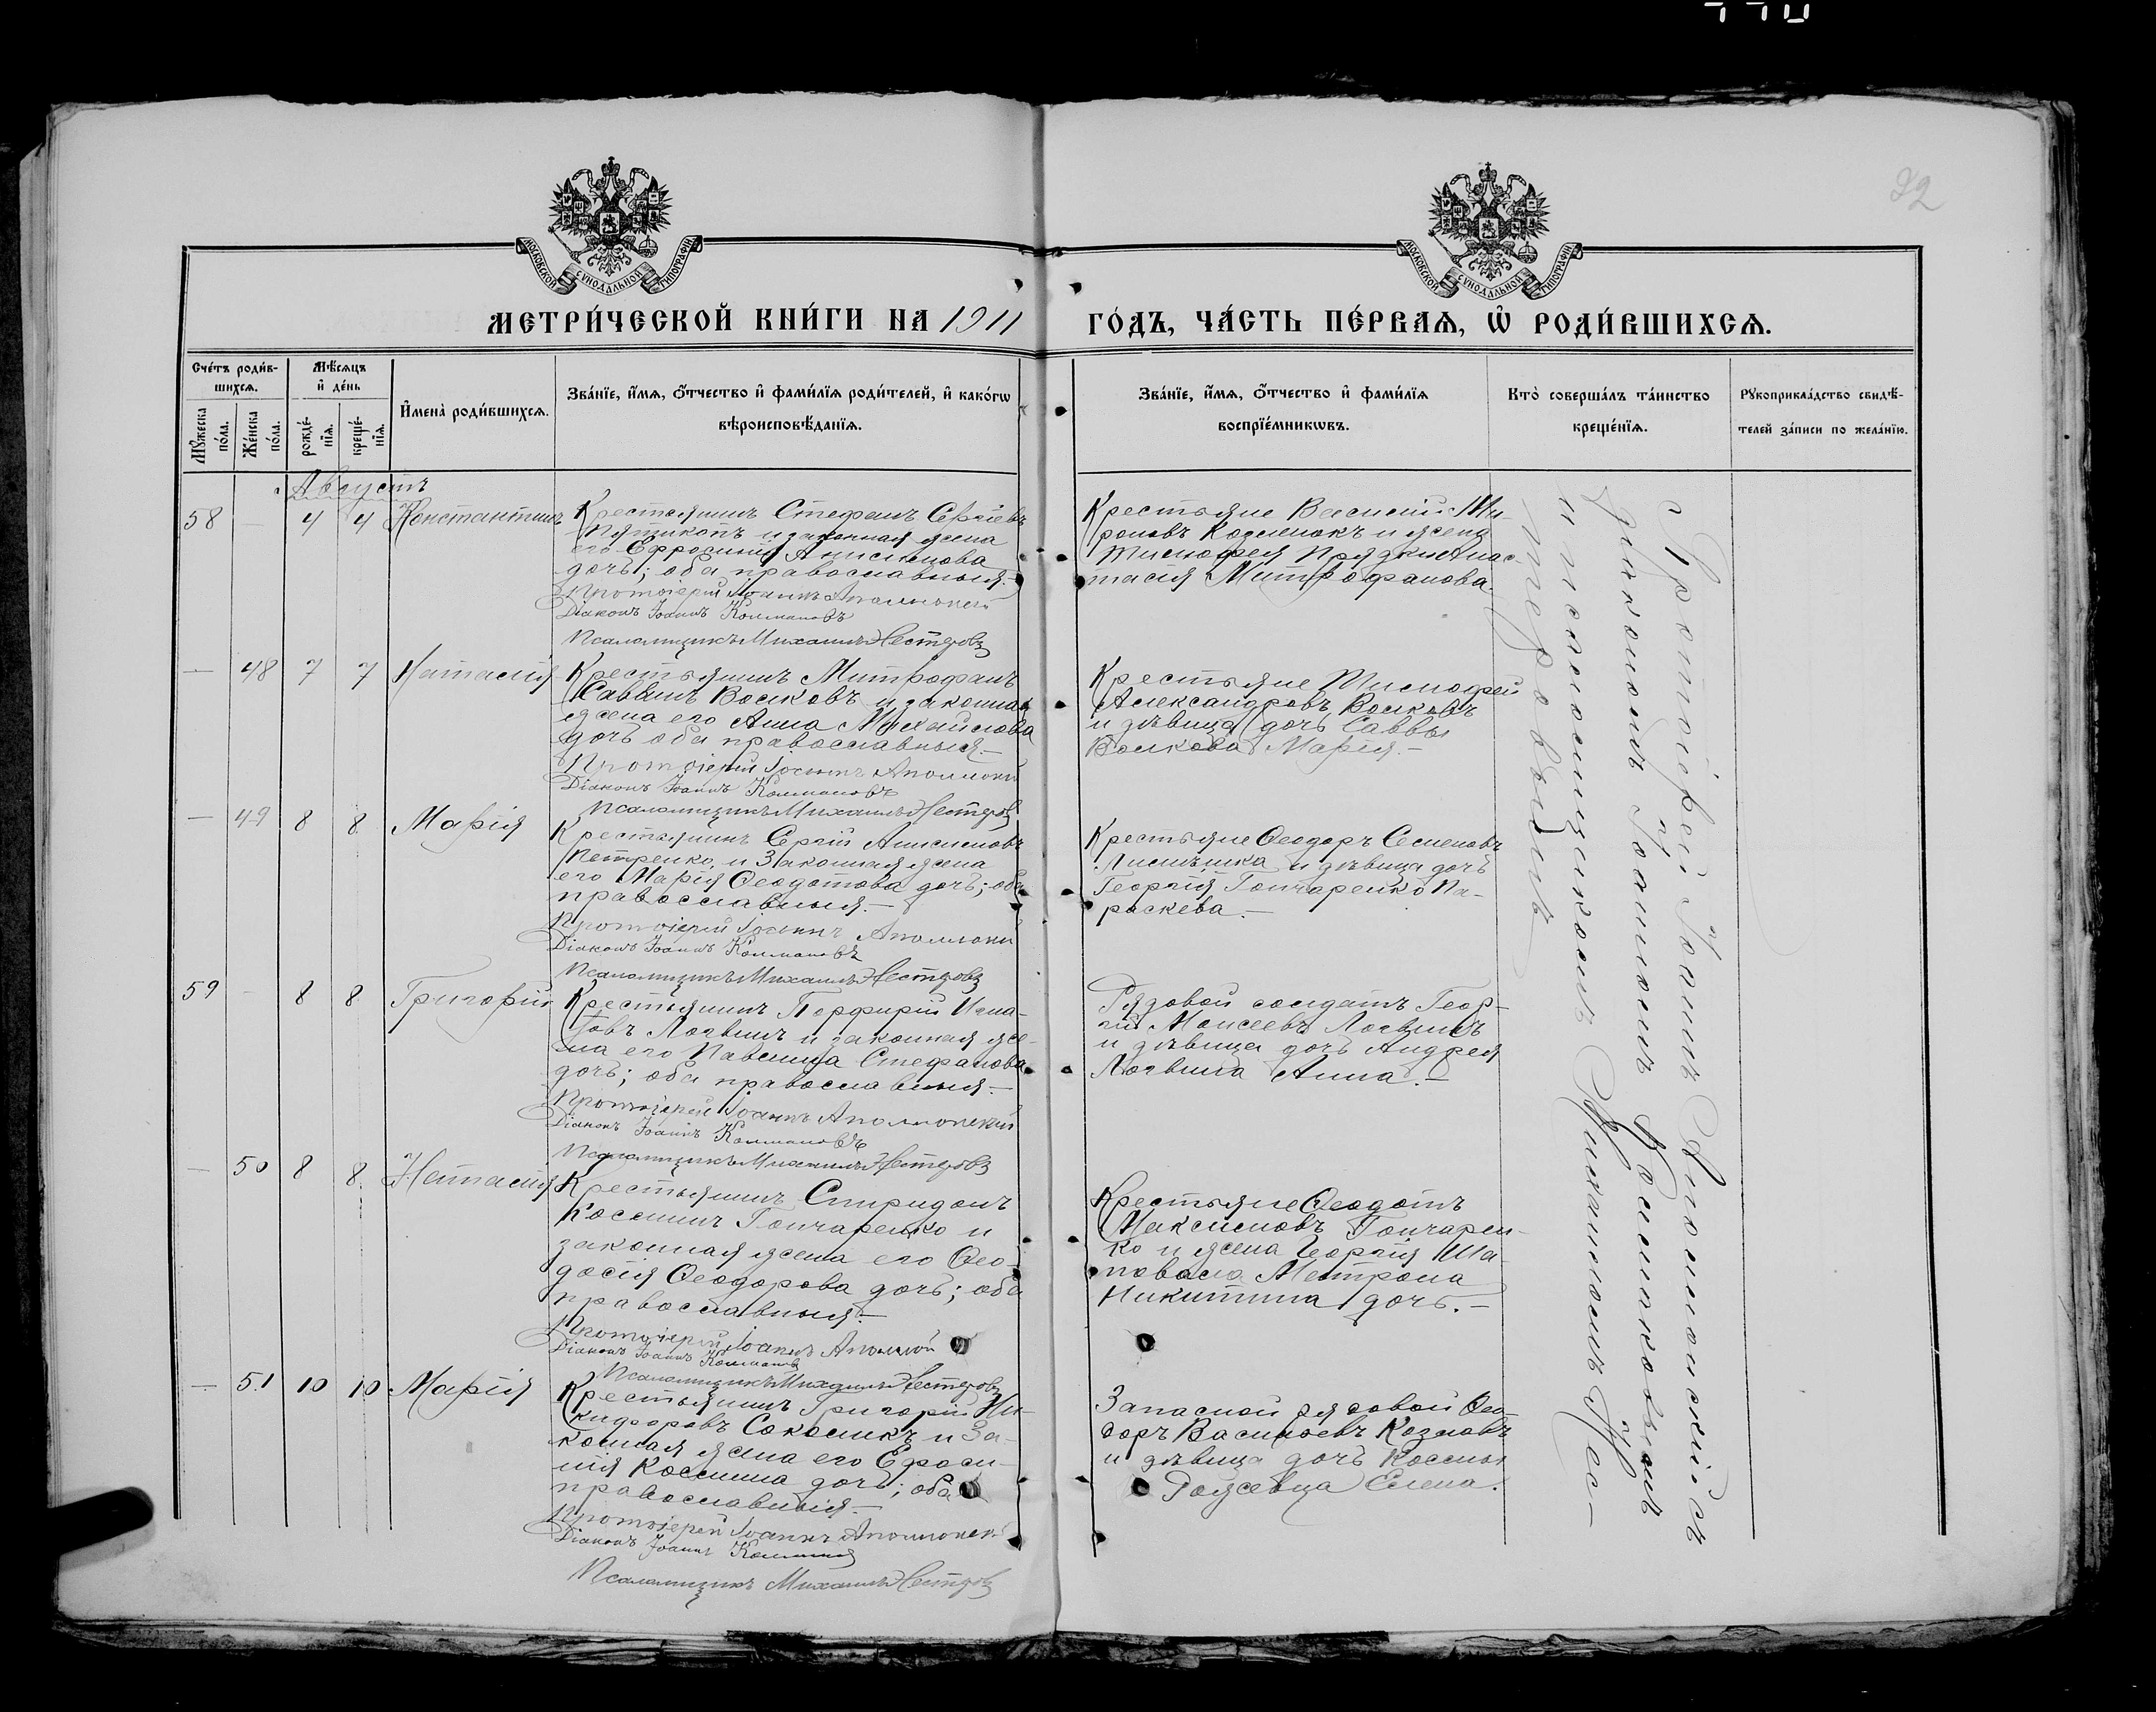 770
92
МОСКОВСКОЙ СѴНОДАЛЬНОЙ ТИПОГРАФІИ
МОСКОВСКОЙ СѴНОДАЛЬНОЙ ТИПОГРАФІИ
МЕТРИ́ЧЕСКОЙ КНИ́ГИ НА 1911
ГО́ДЪ, ЧА́СТЬ ПЕ́РВАѦ, Ѡ҆ РОДИ́ВШИХСѦ.
Сче́тъ роди́в-
шихсѧ.
Мꙋ́жеска по́ла.
Же́нска по́ла.
Мѣ́сѧцъ
и҆ де́нь
рожде́-
нїѧ.
креще́-
нїѧ.
И҆мена̀ роди́вшихсѧ.
Зва́нїе, и҆́мѧ, ѻ҆́тчество и҆ фами́лїѧ роди́телей, и҆ како́гѡ
вѣроисповѣ́данїѧ.
Зва́нїе, и҆́мѧ, ѻ҆́тчество и҆ фами́лїѧ
воспрїе́мникѡвъ.
Кто̀ соверша́лъ та́инство
креще́нїѧ.
Рꙋкоприкла́дство свидѣ́-
телей за́писи по жела́нїю.
Августъ
58 - 4 4 Константинъ
Крестьянинъ Стефанъ Сергіевъ
Пятикопъ и законная жена
его Ефросинія Анисимова
дочь; оба православныя.-
Протоіерей Іоаннъ Аполлонскій
Діаконъ Іоаннъ Колмаковъ
Псаломщикъ Михаилъ Нестеровъ
Крестьяне Василій Ми-
роновъ Козменокъ и жена
Тимофея Прядки Анас-
тасія Митрофанова.
— 48 7 7 Натасія
Крестьянинъ Митрофанъ
Саввинъ Волковъ и законная
жена его Анна Михайлова
дочь оба православныя.—
Протоіерей Іоаннъ Аполлонскій
Діаконъ Іоаннъ Колмаковъ
Псаломщикъ Михаилъ Нестеровъ
Крестьяне Тимофей
Александровъ Волковъ
и дѣвица дочь Саввы
Волкова Марія.—
— 49 8 8 Марія
Крестьянинъ Сергій Анисимовъ
Петренко и Законная жена
его Марія Ѳеодотова дочь; оба
православныя.—
Протоіерей Іоаннъ Аполлонскій
Діаконъ Іоаннъ Колмаковъ
Псаломщикъ Михаилъ Нестеровъ
Крестьяне Ѳеодоръ Семеновъ
и дѣвица дочь
Георгія Гончаренко Па-
раскева.—
59 - 8 8 Григорій
Крестьянинъ Порфирій Игна-
товъ Логвинъ и законная же-
на его Павлина Стефанова
дочь; оба православныя.—
Протоіерей Іоаннъ Аполлонскій
Діаконъ Іоаннъ Колмаковъ
Псаломщикъ Михаилъ Нестеровъ
Рядовой солдатъ Геор-
гій Моисеевъ Логвинъ
и дѣвица дочь Андрея
Логвина Анна.—
— 50 8 8. Натасія
Крестьянинъ Спиридонъ
Косминъ Гончаренко и
законная жена его Ѳео-
досія Ѳеодорова дочь; оба
православныя.—
Протоіерей Іоаннъ Аполлонскій
Діаконъ Іоаннъ Колмаковъ
Псаломщикъ Михаилъ Нестеровъ
Крестьяне Ѳеодотъ
Максимовъ Гончарен-
ко и жена Георгія Ша-
повала Матрона
Никитина дочь.—
— 51 10 10 Марія
Крестьянинъ Григорій Ни-
кифоровъ Соколикъ и За-
конная жена его Ефроси-
нія Космина дочь; оба
православныя.—
Протоіерей Іоаннъ Аполлонскій
Діаконъ Іоаннъ Колмаковъ
Псаломщикъ Михаилъ Нестеровъ
Запасной рядовой Ѳео-
доръ Васильевъ Козловъ
и дѣвица дочь Космы
Елена.
Протоіерей Іоаннъ Аполлонскій съ
діакономъ Іоанномъ Колмаковымъ
и псаломщикомъ Михаиломъ Нес-
теровымъ